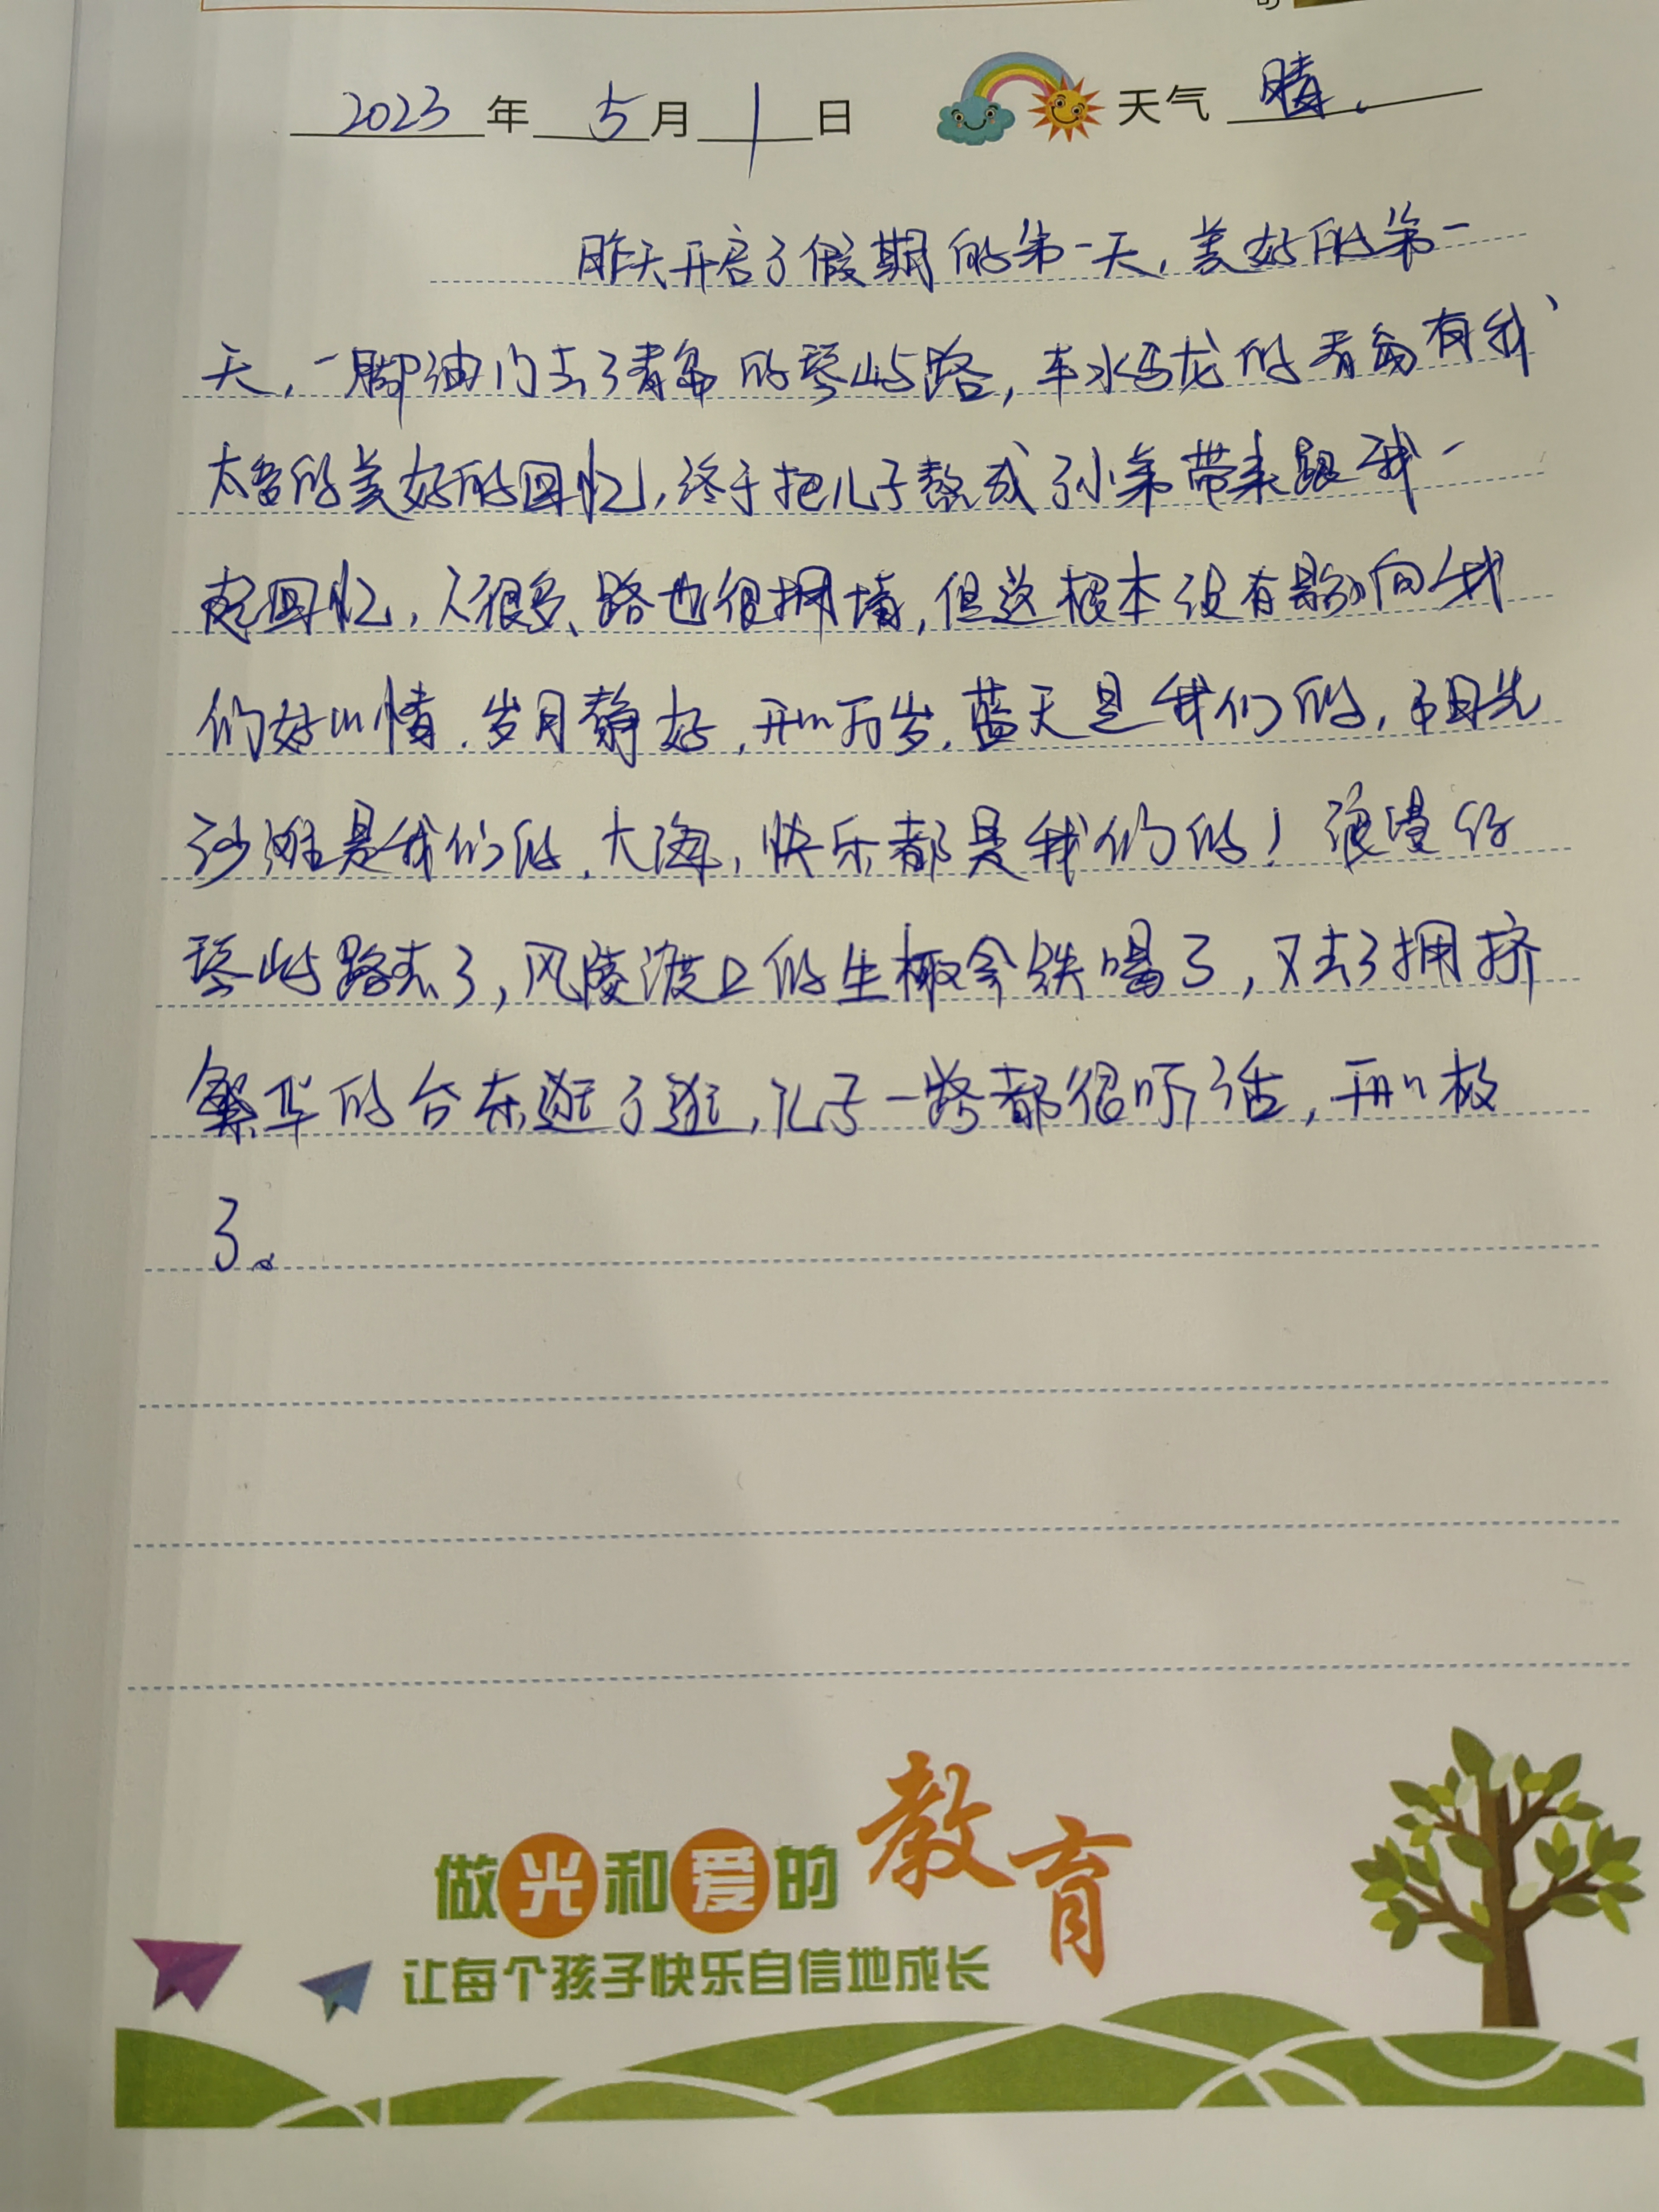 2023年5月1日 天气 晴.
昨天开启了假期的第一天,美好的第一
天,一脚油门去了青岛的琴屿路,车水马龙的青岛有我
太多的美好的回忆,终于把儿子熬成了小弟带来跟我一
起回忆,人很多、路也很拥堵,但这根本没有影响我
们好心情.岁月静好,开心万岁,蓝天是我们的,阳光
沙滩是我们的.大海,快乐都是我们的!浪漫的
琴屿路去了,风陵渡口的生椰拿铁喝了,又去了拥挤
繁华的台东逛了逛,儿子一路都很听话,开心极
了。
做光和爱的教育
让每个孩子快乐自信地成长